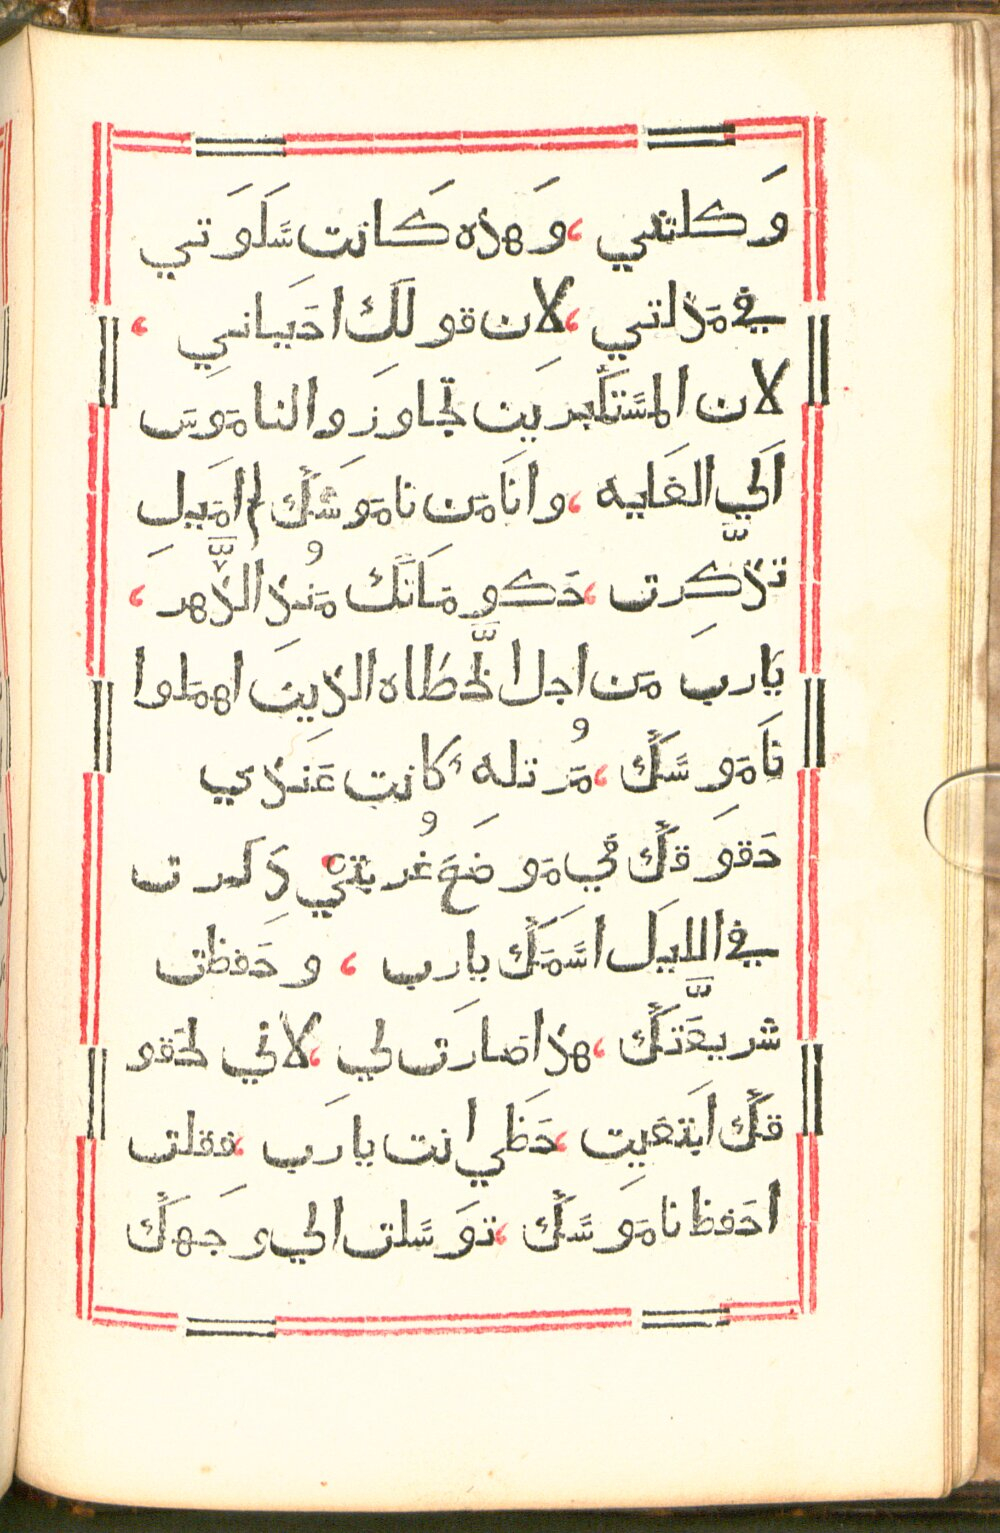 وَكلتني، وَهذه كَانت سَلَوَتي
في مَذلتي، لان قولَك احَيياني،
لان المسَتَكبريَن تجاوزَوا الناموَسَ
اَلي الغَايه، وانَا مَن نامَوسَك لم امَيلِ
تذَّكرِت، حَكومَاتَك مَنُذ الدَّهر،
يَاربَ مَن اجل الخَّطاه الذِينَ اهمَلوا
نَامَوسَك، مُرَتله كانت عَندي
حَقوَقك في مَوضَع غُربتي ذَكرت
في الليَل اسَمَك يارب، وحَفظت
شريعَّتَك، هذا صَارَت لي، لاني لحَقو
قَك اَبتغيِت، حَظي انت يارَب، فقلت
احَفظ نامَوسَك، توَسَلت الي وجَهَك